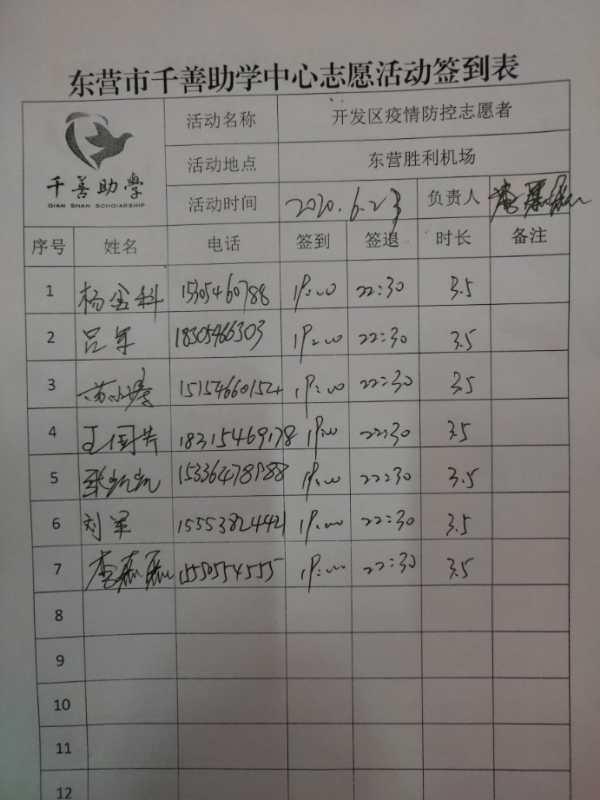 东营市千善助学中心志愿活动签到表
千善助学
QIAN SHAN SCHOLARSHIP
活动名称 开发区疫情防控志愿者
活动地点 东营胜利机场
活动时间 2020.6.23 负责人 李磊磊
序号 姓名 电话 签到 签退 时长 备注
1 杨金科 15305460788 19:00 22:30 3.5
2 吕军 18305466303 19:00 22:30 3.5
3 15154660152 19:00 22:30 3.5
4 王国芳 18315469178 19:00 22:30 3.5
5 张凯凯 15336478988 19:00 22:30 3.5
6 刘军 15553824421 19:00 22:30 3.5
7 李磊磊 15550554555 19:00 22:30 3.5
8
9
10
11
12